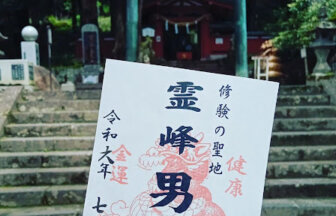 修験の聖地
霊峰男
令和六年 七
健康
金運